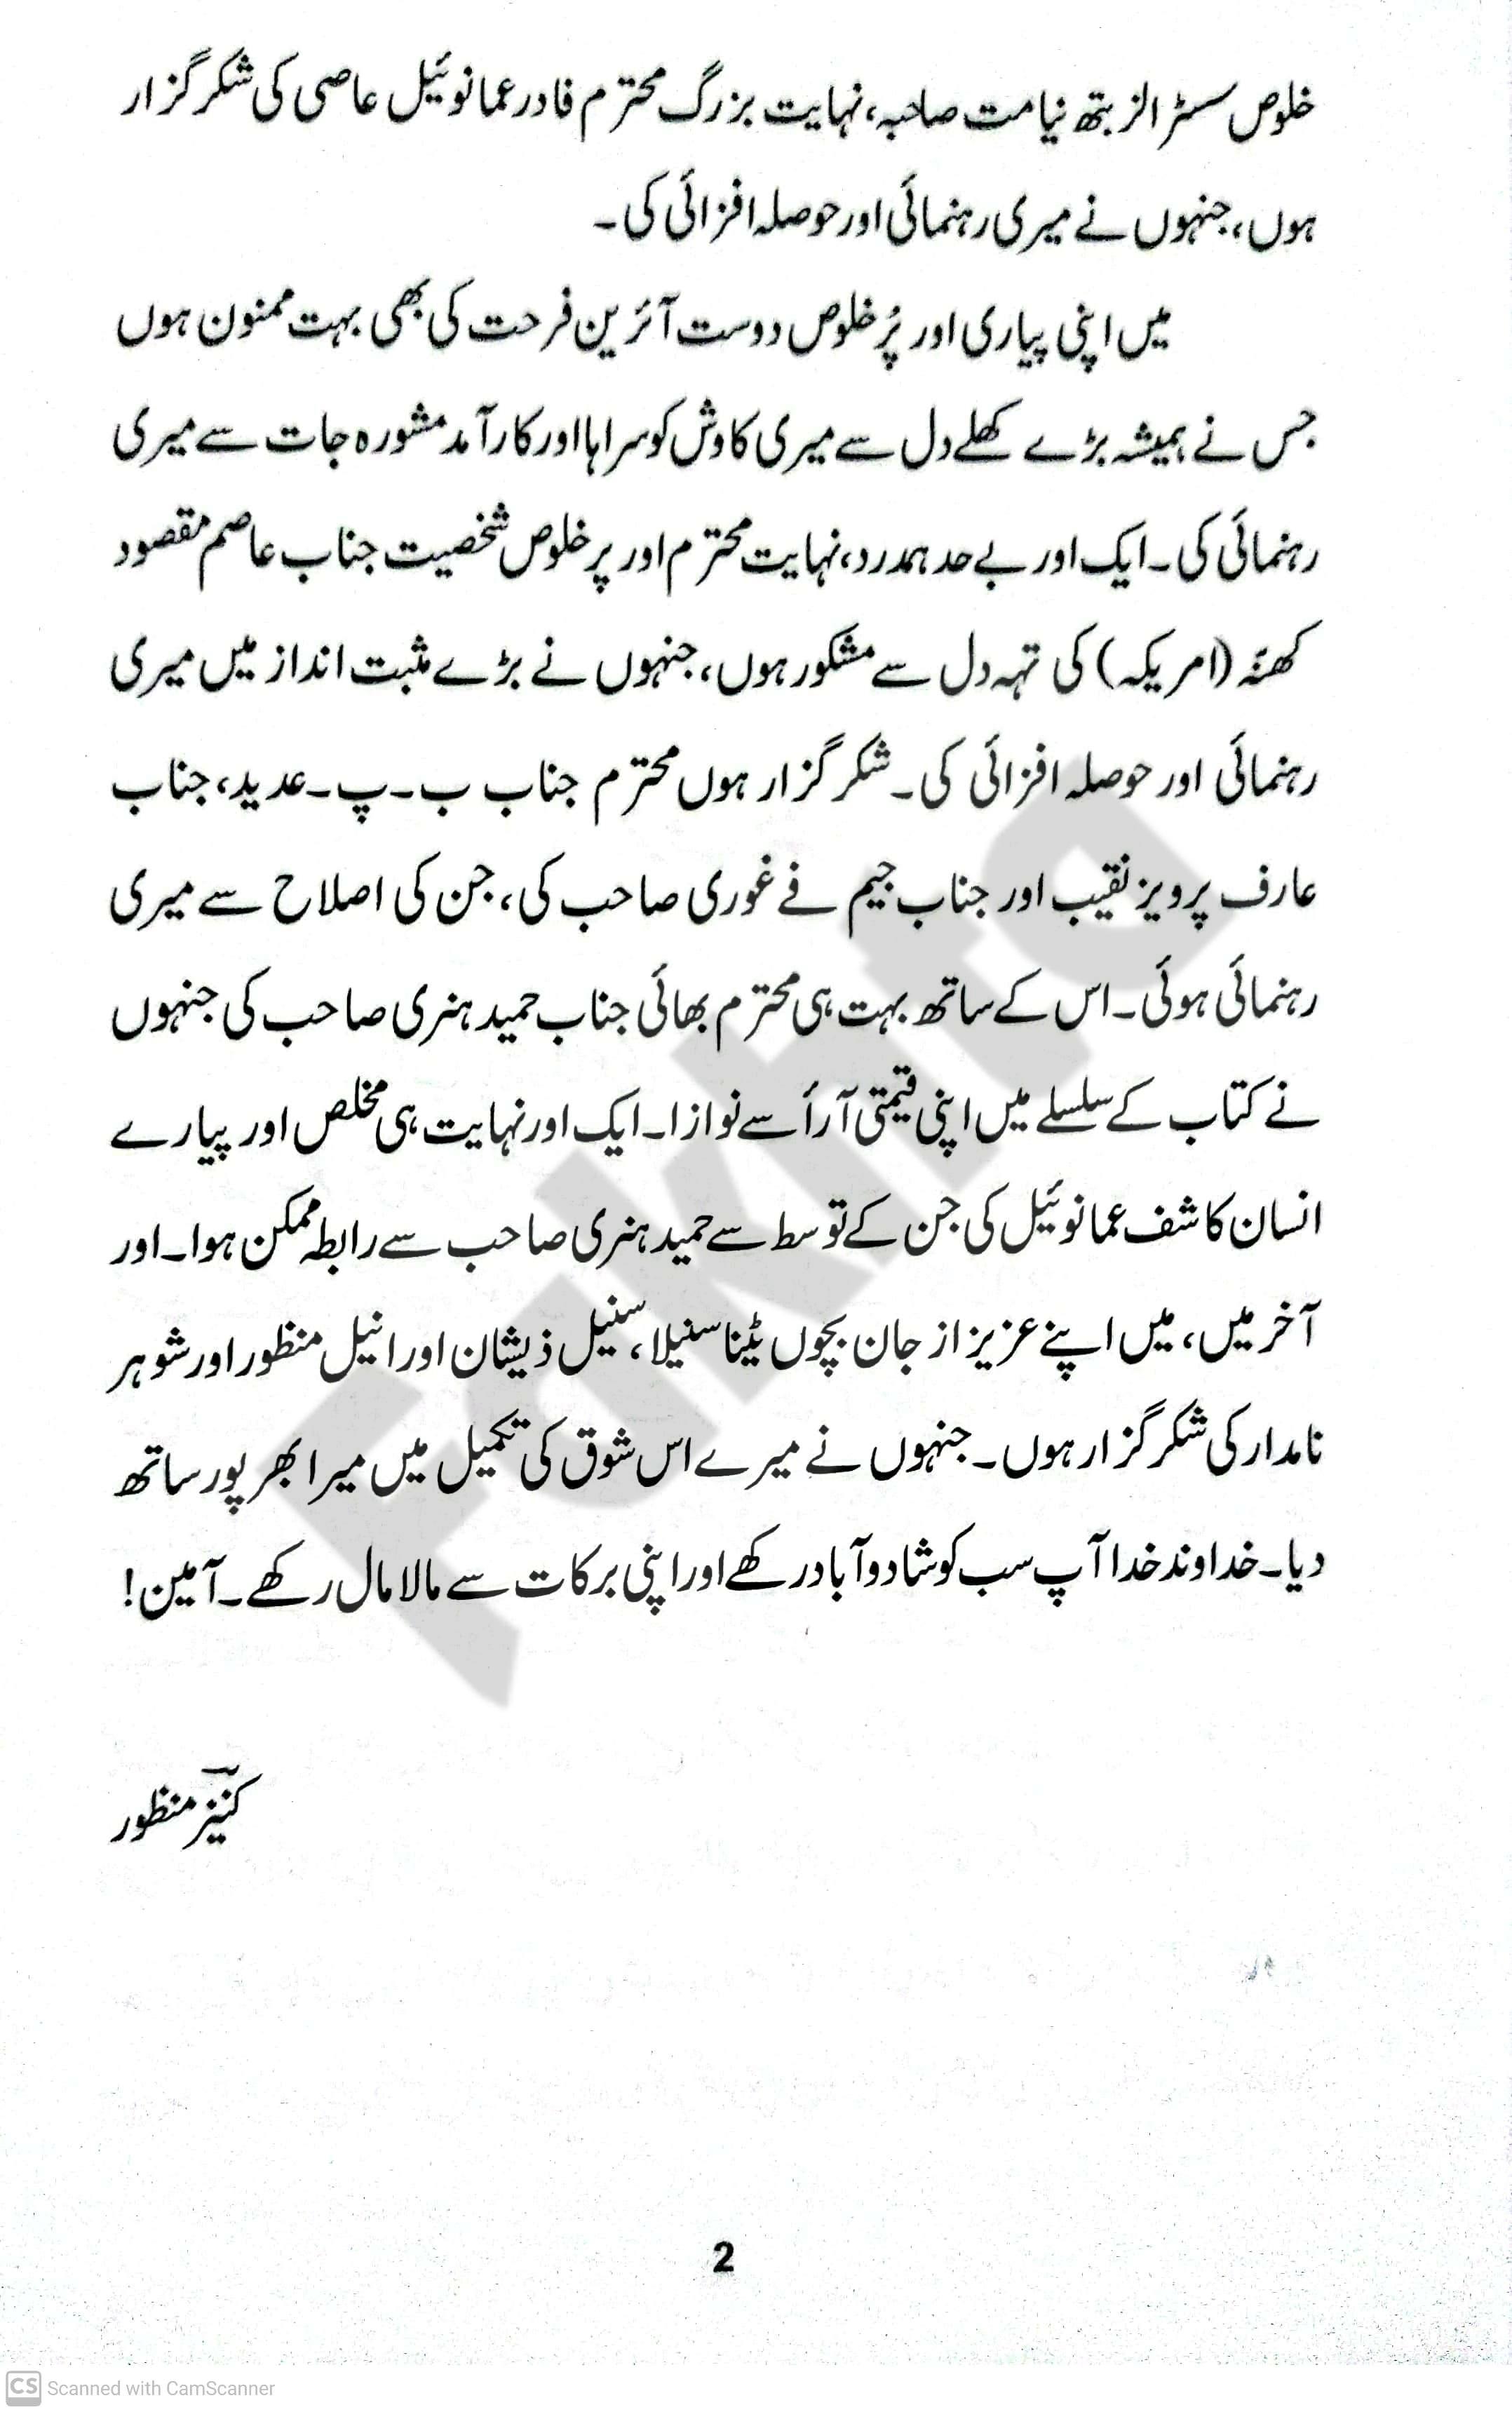 خلوص سسٹر الزبتھ نیامت صاحبہ، نہایت بزرگ محترم فادر عمانوئیل عاصی کی شکر گزار
ہوں، جنہوں نے میری رہنمائی اور حوصلہ افزائی کی۔
میں اپنی پیاری اور پُرخلوص دوست آئرین فرحت کی بھی بہت ممنون ہوں
جس نے ہمیشہ بڑے کھلے دل سے میری کاوش کو سراہا اور کارآمد مشورہ جات سے میری
رہنمائی کی۔ ایک اور بے حد ہمدرد، نہایت محترم اور پرخلوص شخصیت جناب عاصم مقصود
کھنّہ (امریکہ) کی تہہ دل سے مشکور ہوں، جنہوں نے بڑے مثبت انداز میں میری
رہنمائی اور حوصلہ افزائی کی۔ شکر گزار ہوں محترم جناب ب۔پ۔عدید، جناب
عارف پرویز نقیب اور جناب جیم فے غوری صاحب کی، جن کی اصلاح سے میری
رہنمائی ہوئی۔ اس کے ساتھ بہت ہی محترم بھائی جناب حمید ہنری صاحب کی جنہوں
نے کتاب کے سلسلے میں اپنی قیمتی آرأ سے نوازا۔ ایک اور نہایت ہی مخلص اور پیارے
انسان کاشف عمانوئیل کی جن کے توسط سے حمید ہنری صاحب سے رابطہ ممکن ہوا۔ اور
آخر میں، میں اپنے عزیز از جان بچوں ٹینا سنیلا، سنیل ذیشان اور انیل منظور اور شوہر
نامدار کی شکر گزار ہوں۔ جنہوں نے میرے اس شوق کی تکمیل میں میرا بھر پور ساتھ
دیا۔ خداوند خدا آپ سب کو شاد و آباد رکھے اور اپنی برکات سے مالا مال رکھے۔ آمین!
کنیزؔ منظور
2
Fakhta
CS Scanned with CamScanner